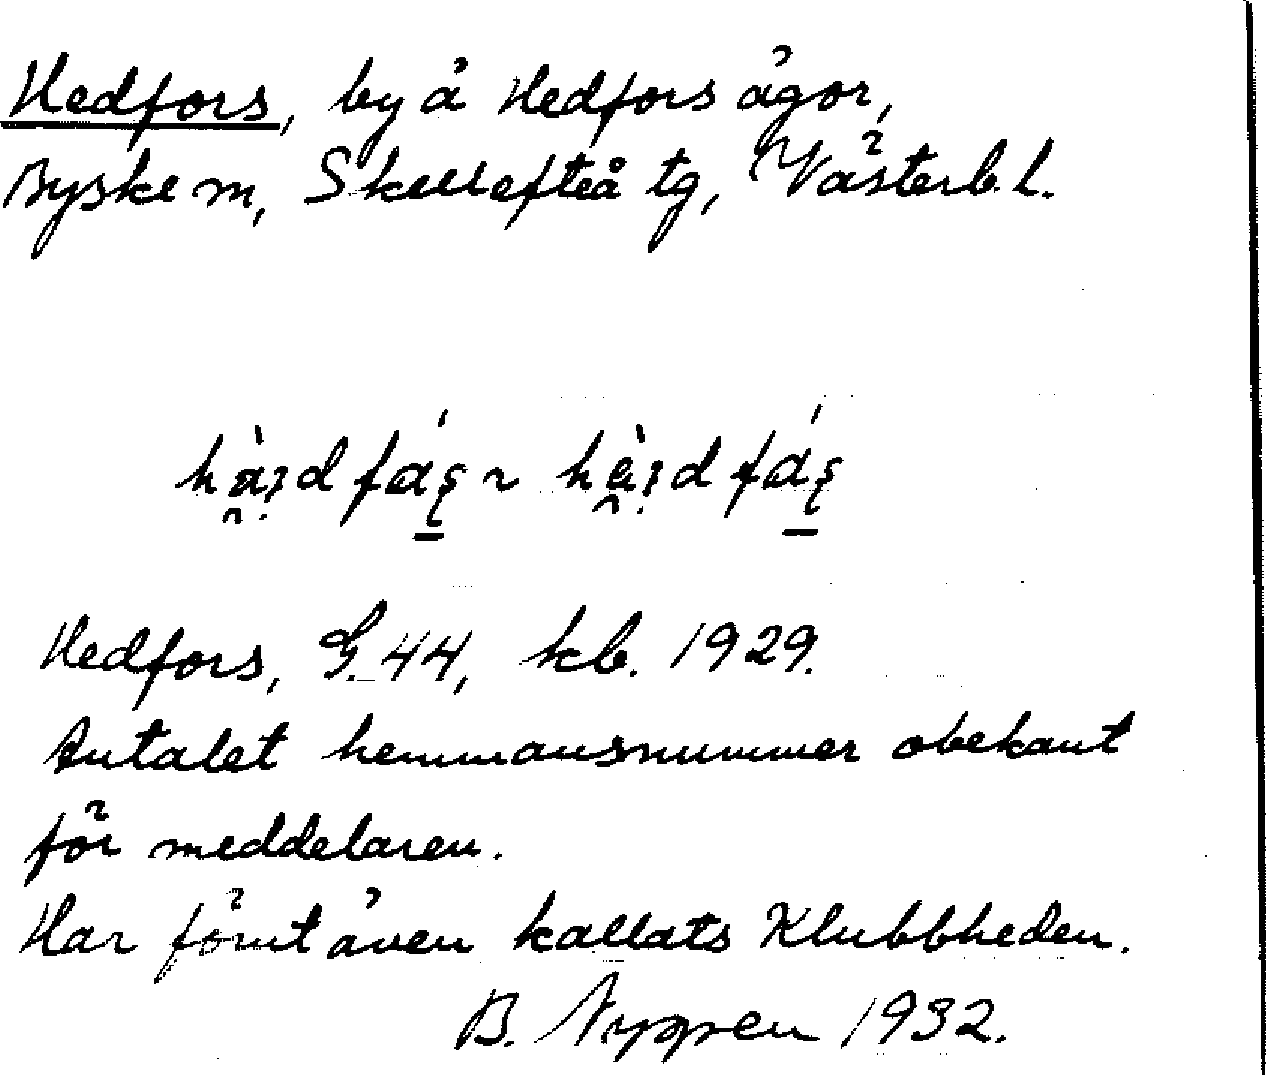 Hedfors, by å Hedfors ägor,
Byske sn, Skellefteå tg, Västerb. l.
Hedfors, G. 44, kb. 1929.
Antalet hemmansnummer obekant
för meddelaren.
Har förut även kallats Klubbheden.
B. Nygren 1932.